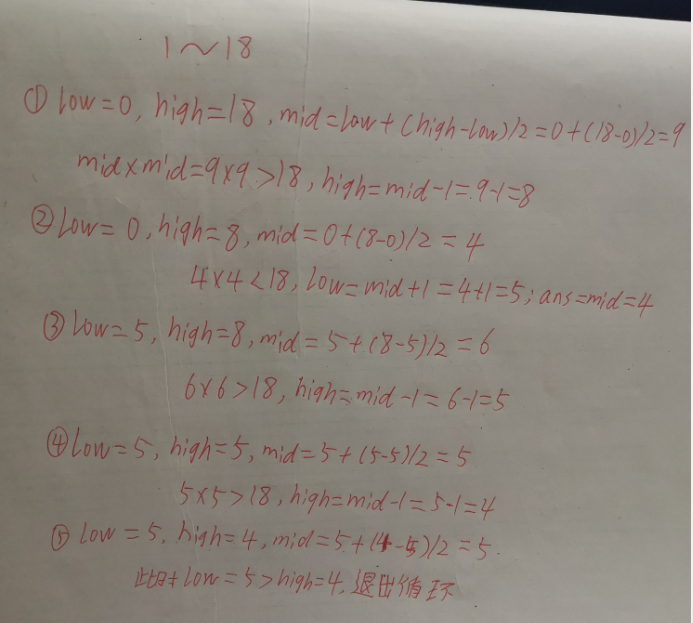 1~18
① low=0, high=18, mid=low+(high-low)/2=0+(18-0)/2=9
mid×mid=9×9>18, high=mid-1=9-1=8
② low=0, high=8, mid=0+(8-0)/2=4
4×4<18, low=mid+1=4+1=5; ans=mid=4
③ low=5, high=8, mid=5+(8-5)/2=6
6×6>18, high=mid-1=6-1=5
④ low=5, high=5, mid=5+(5-5)/2=5
5×5>18, high=mid-1=5-1=4
⑤ low=5, high=4, mid=5+(4-5)/2=5.
此时 low=5>high=4, 退出循环